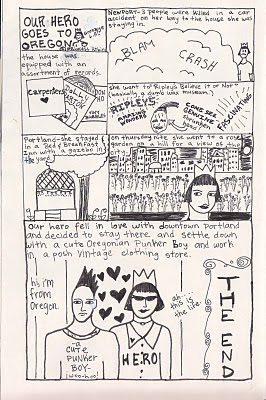 OUR HERO
GOES TO
OREGON:
the house was
equipped with an
assortment of records.
Carpenters
DON
HO
TONY
NEWPORT- 3 people were killed in a car
accident on her way to the house she was
staying in.
BLAM
CRASH
she went to "Ripley's Believe it or Not"
(basically a dumb wax museum.)
RIPLEY'S
COME SEE
GENUINE
Portland-she stayed
in a Bed & Breakfast
Inn with a gazebo in
the yard
on thursday nite she went to a rose
garden on a hill for a view of the
city.
Our hero fell in love with downtown Portland
and decided to stay there and settle down
with a cute Oregonian Punker Boy and work
in a posh vintage clothing store.
hi! i'm
from
Oregon.
ah...
this is
the life.
-a
CUTE
PUNKER
BOY-
(woo-hoo)
HERO!
THE END